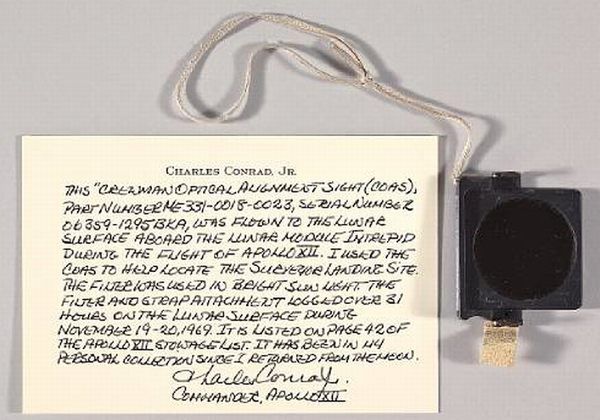 CHARLES CONRAD, JR.
THIS "CREWMAN OPTICAL ALIGNMENT SIGHT (COAS),
PART NUMBER ME 331-0018-0023, SERIAL NUMBER
06359-1295BKA, WAS FLOWN TO THE LUNAR
SURFACE ABOARD THE LUNAR MODULE INTREPID
DURING THE FLIGHT OF APOLLO XII. I USED THE
COAS TO HELP LOCATE THE SURVEYOR LANDING SITE.
THE FILTER WAS USED IN BRIGHT SUN LIGHT. THE
FILTER AND STRAP ATTACHMENT LOGGED OVER 31
HOURS ON THE LUNAR SURFACE DURING
NOVEMBER 19-20, 1969. IT IS LISTED ON PAGE 42 OF
THE APOLLO XII STOWAGE LIST. IT HAS BEEN IN MY
PERSONAL COLLECTION SINCE I RETURNED FROM THE MOON.
Charles Conrad Jr.
COMMANDER, APOLLO XII